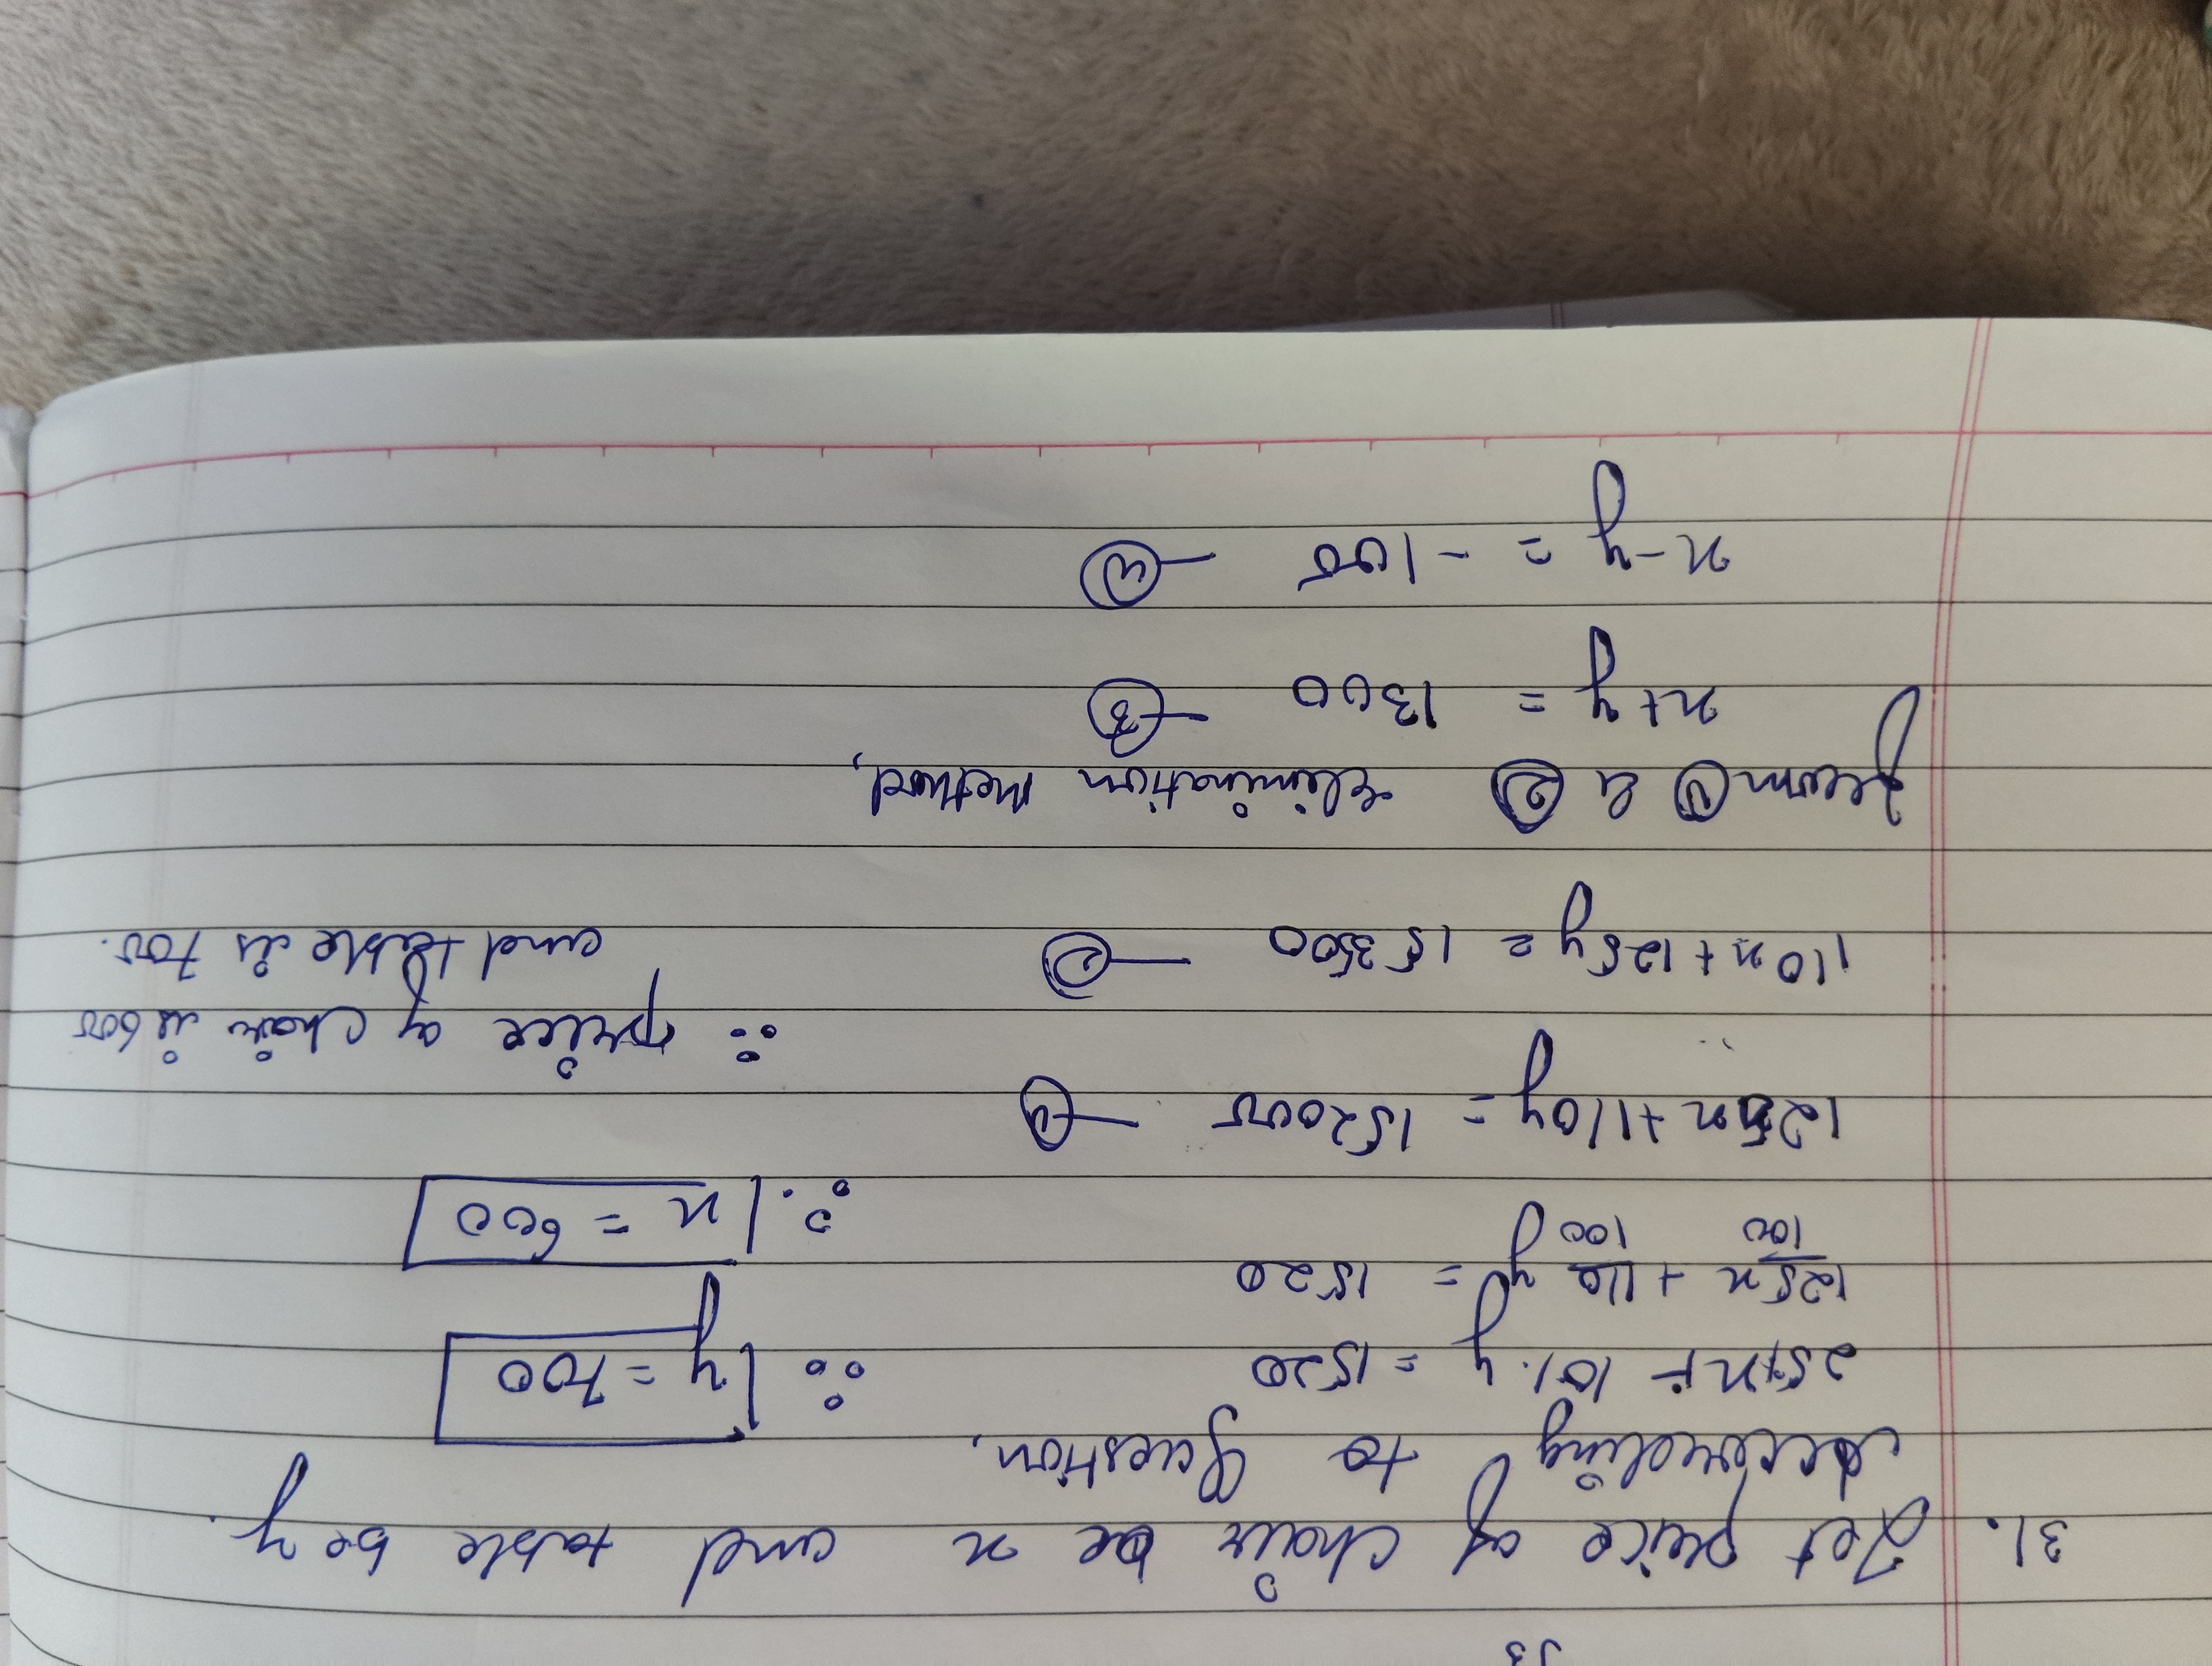 31. Let price of chair be x and table be y.
According to Question,
25% x + 10% y = 1520
125x/100 + 110/100 y = 1520
125x + 110y = 152000 — ①
110x + 125y = 153500 — ②
from ① & ② elimination method,
x + y = 1300 — ③
x - y = -100 — ④
∴ y = 700
∴ x = 600
∴ price of chair is 600
and table is 700.